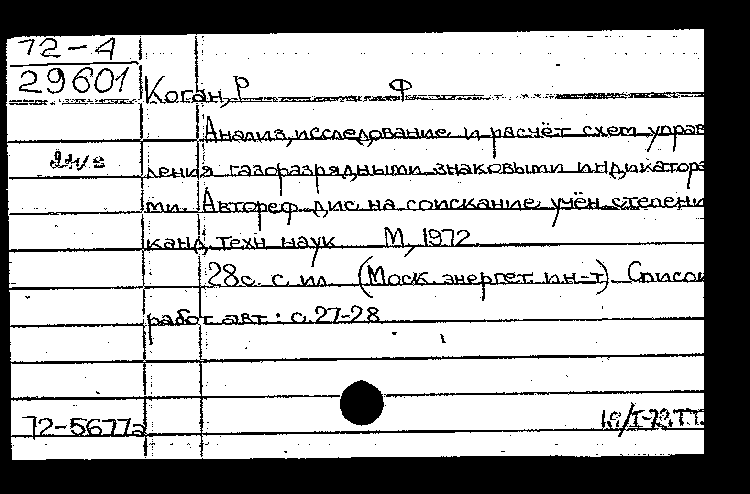 72-4
29601
Коган, Р Ф
Анализ, исследование и расчёт схем управ
ления газоразрядными знаковыми индикатора
ми. Автореф дис. на соискание учён степени
канд. техн наук М, 1972
28с. с ил. (Моск. энергет. ин-т). Список
работ авт.: с.27-28
72-5677а